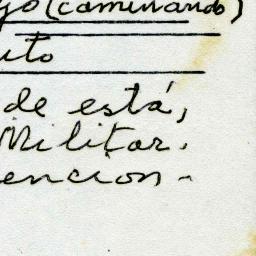 jo (caminando)
ito
de está,
Militar.
encion-